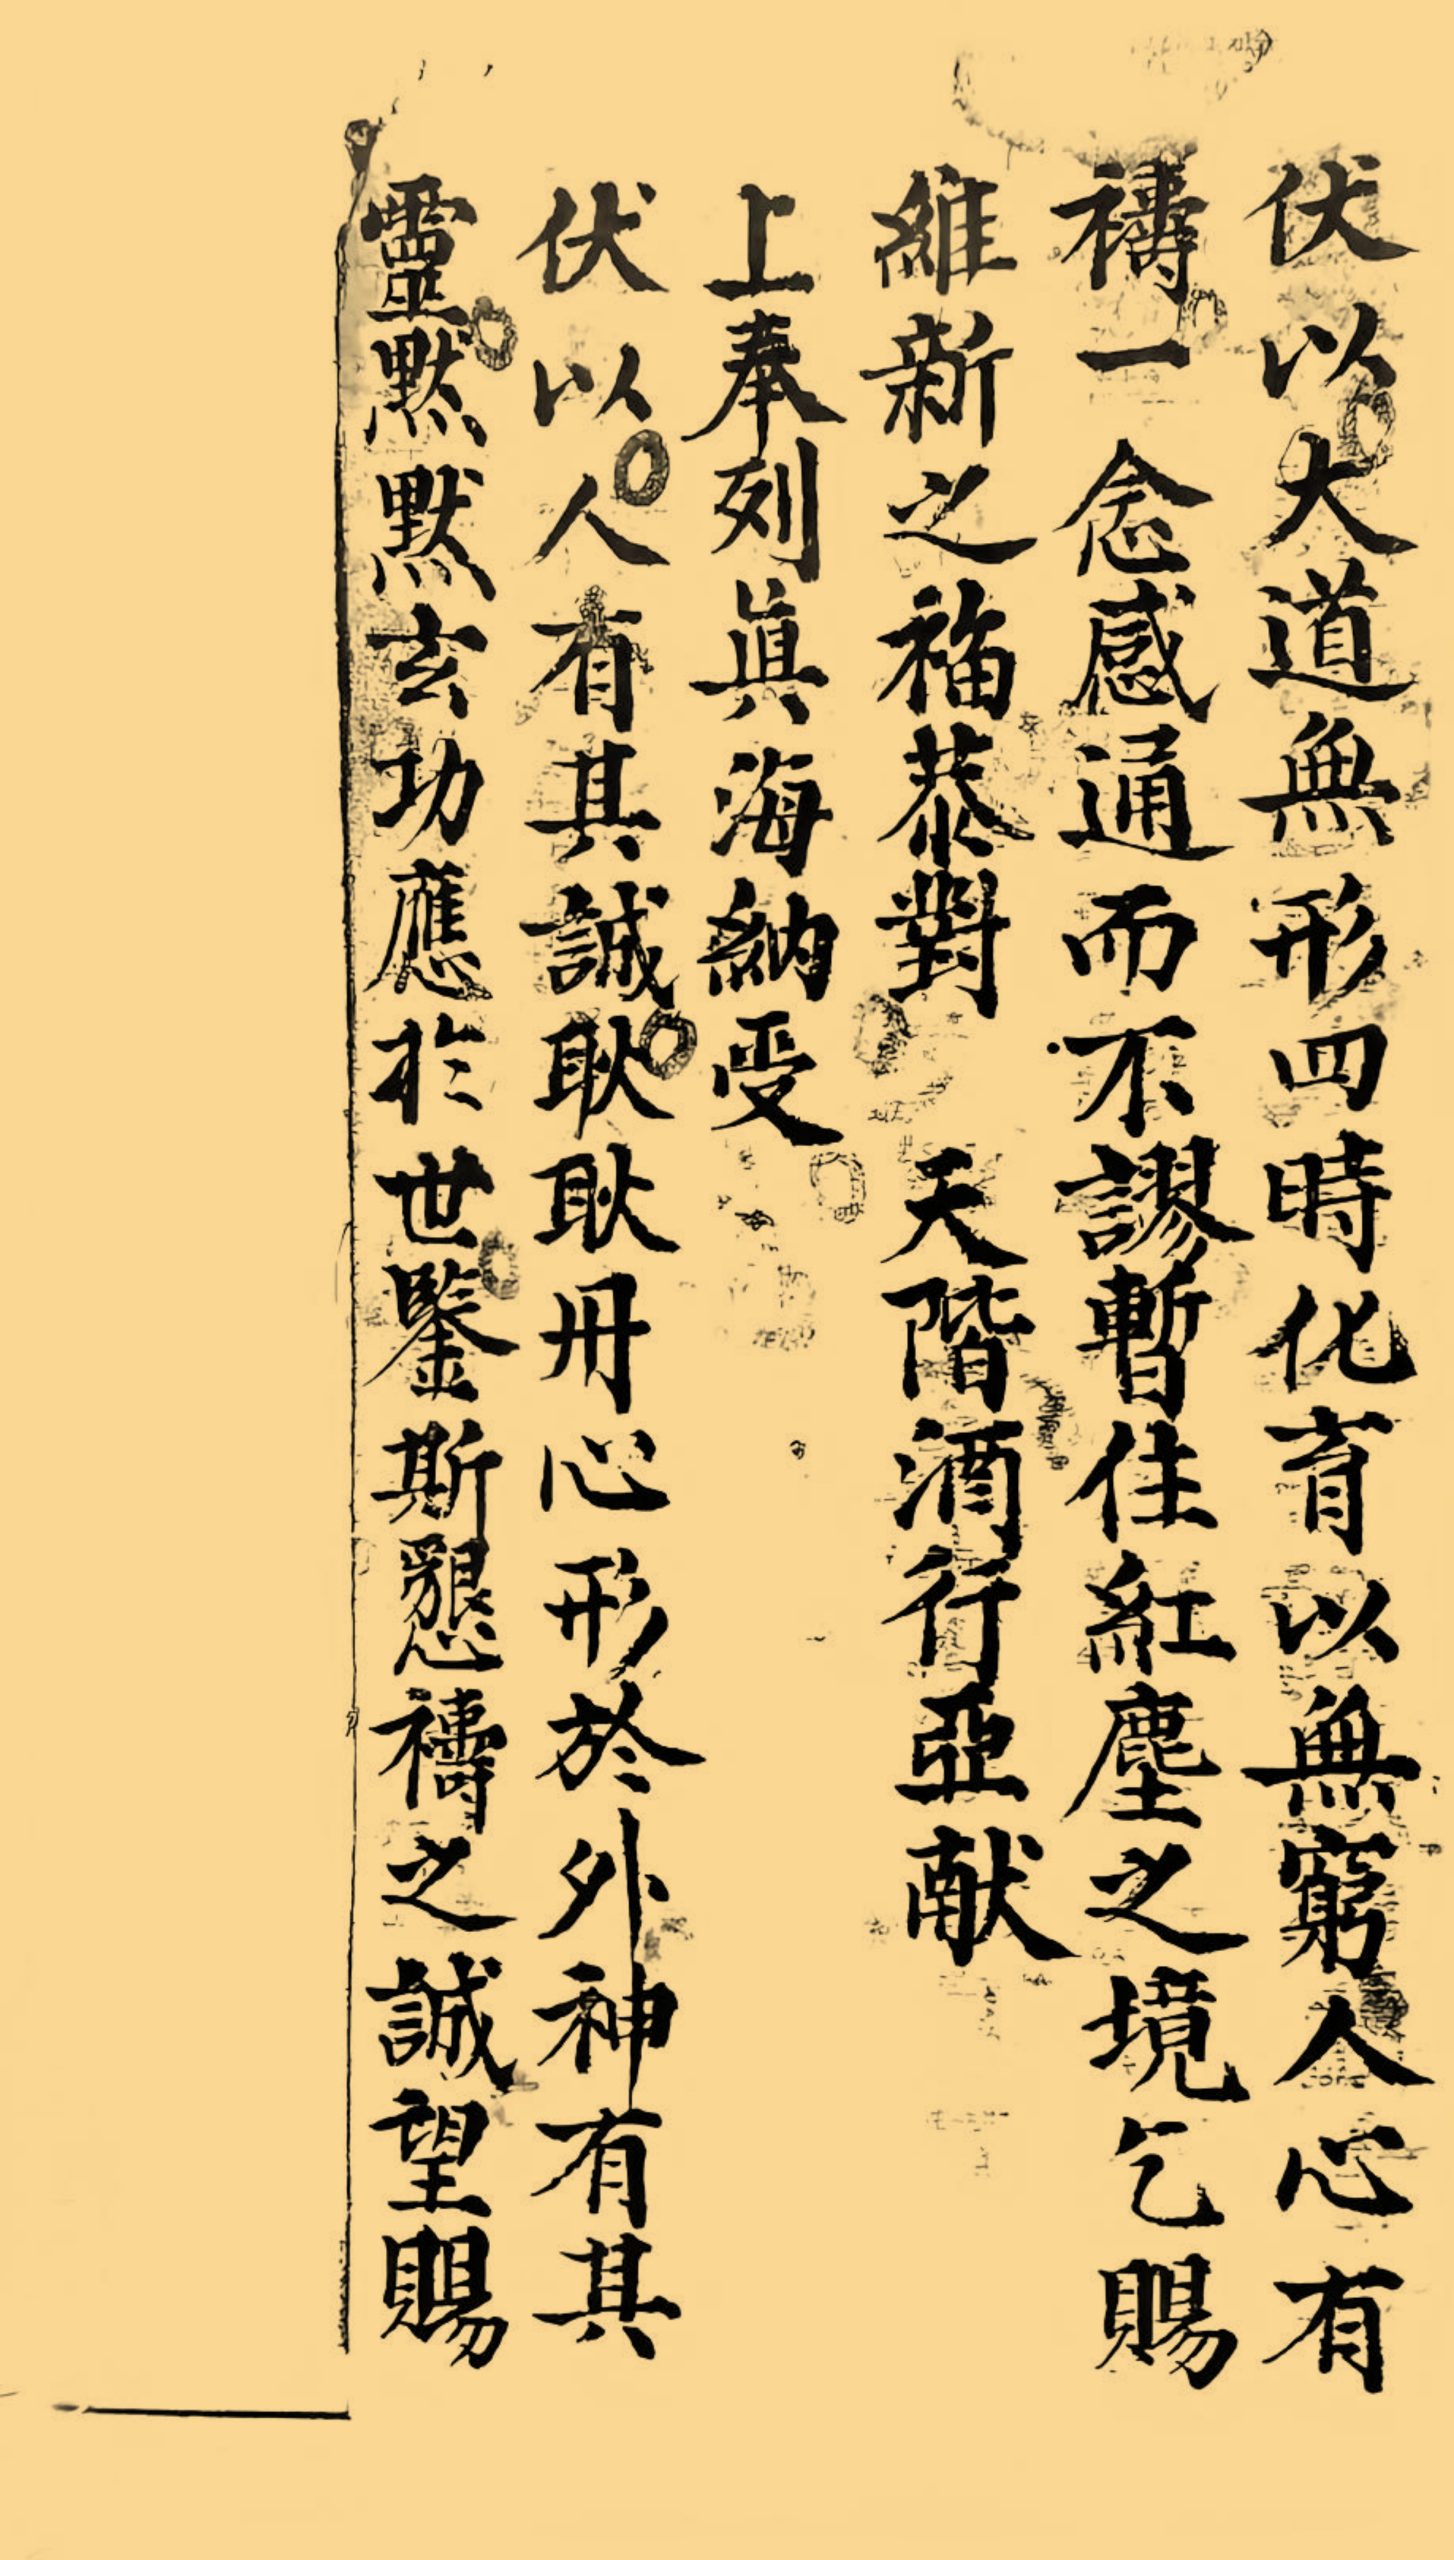 伏以大道無形四時化育以無窮人心有
禱一念感通而不謬暫住紅塵之境乞賜
維新之福恭對　天階酒行亞献
上奉列眞海納受
伏以人有其誠耿耿丹心形於外神有其
靈默默玄功應於世鑒斯懇禱之誠望賜